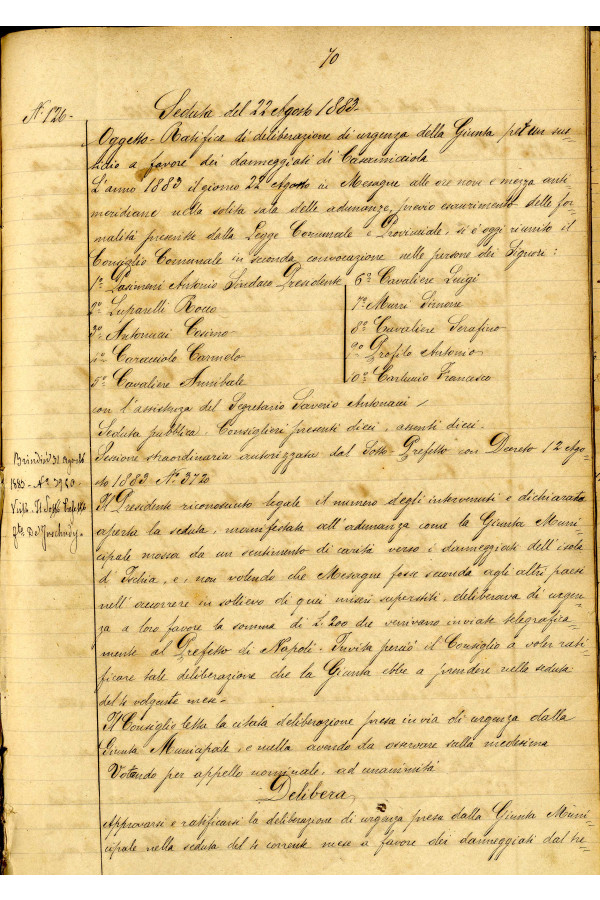 70
N. 126-
Seduta del 22 Agosto 1883-
Oggetto- Ratifica di deliberazione di urgenza della Giunta per un sus=
sidio a favore dei danneggiati di Casamicciola
L'anno 1883 il giorno 22 Agosto in Mesagne alle ore nove e mezza anti=
meridiane nella solita sala delle adunanze, previo esaurimento delle for=
malità prescritte dalla Legge Comunale e Provinciale, si è oggi riunito il
Consiglio Comunale in seconda convocazione nelle persone dei Signori:
1° Pasimeni Antonio Sindaco Presidente
2° Luparelli Rocco
3° Antonucci Cosimo
4° Caracciolo Carmelo
5° Cavaliere Annibale
6° Cavaliere Luigi
7° Murri Simone
8° Cavaliere Serafino
9° Profilo Antonio
10° Carluccio Francesco
con l'assistenza del Segretario Saverio Antonucci/
Seduta pubblica. Consiglieri presenti dieci, assenti dieci.
Sessione straordinaria autorizzata dal Sotto-Prefetto con Decreto 12 Ago=
sto 1883 N° 3720
Il Presidente riconosciuto legale il numero degli intervenuti e dichiarata
aperta la seduta, manifestata all'adunanza come la Giunta Muni=
cipale mossa da un sentimento di carità verso i danneggiati dell'isola
d'Ischia, e, non volendo che Mesagne fosse seconda agli altri paesi
nell'accorrere in sollievo di quei miseri superstiti, deliberava di urgen=
za a loro favore la somma di L. 200 che venivano inviate telegrafica=
mente al Prefetto di Napoli. Invita perciò il Consiglio a voler rati=
ficare tale deliberazione che la Giunta ebbe a prendere nella seduta
del 4 volgente mese-
Il Consiglio letta la citata deliberazione presa in via di urgenza dalla
Giunta Municipale, e nulla avendo da osservare sulla medesima
Votando per appello nominale, ad unanimità
Delibera
Approvarsi e ratificarsi la deliberazione di urgenza presa dalla Giunta Muni=
cipale nella seduta del 4 corrente mese a favore dei danneggiati dal te=
Brindisi 31 Agosto
1883- N°
Visto- Il Sotto Prefetto